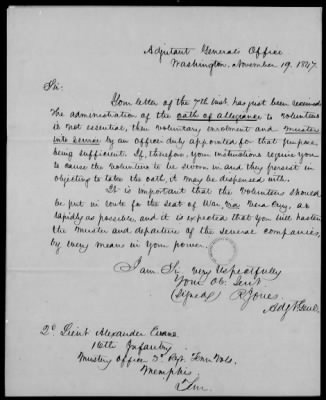 Adjutant General's Office
Washington, November 19. 1847.
Sir:
Your letter of the 7th inst. has just been received.
The administration of the oath of allegiance to volunteers
is not essential, their voluntary enrolment and muster
into service by an officer duly appointed for that purpose,
being sufficient. If, therefore, your instructions require you
to cause the Volunteers to be sworn in and they persist in
objecting to take the oath, it may be dispensed with.
It is important that the Volunteers should
be put in route for the seat of War, via Vera Cruz, as
rapidly as possible, and it is expected that you will hasten
the muster and departure of the several companies,
by every means in your power.
I am Sir Very respectfully
Your Ob. Servt.
(signed) R. Jones.
Adjt. Genl.
2d Lieut Alexander Evans
16th Infantry
Mustg Officer 3d Regt. Tenn Vols.
Memphis
Tenn.